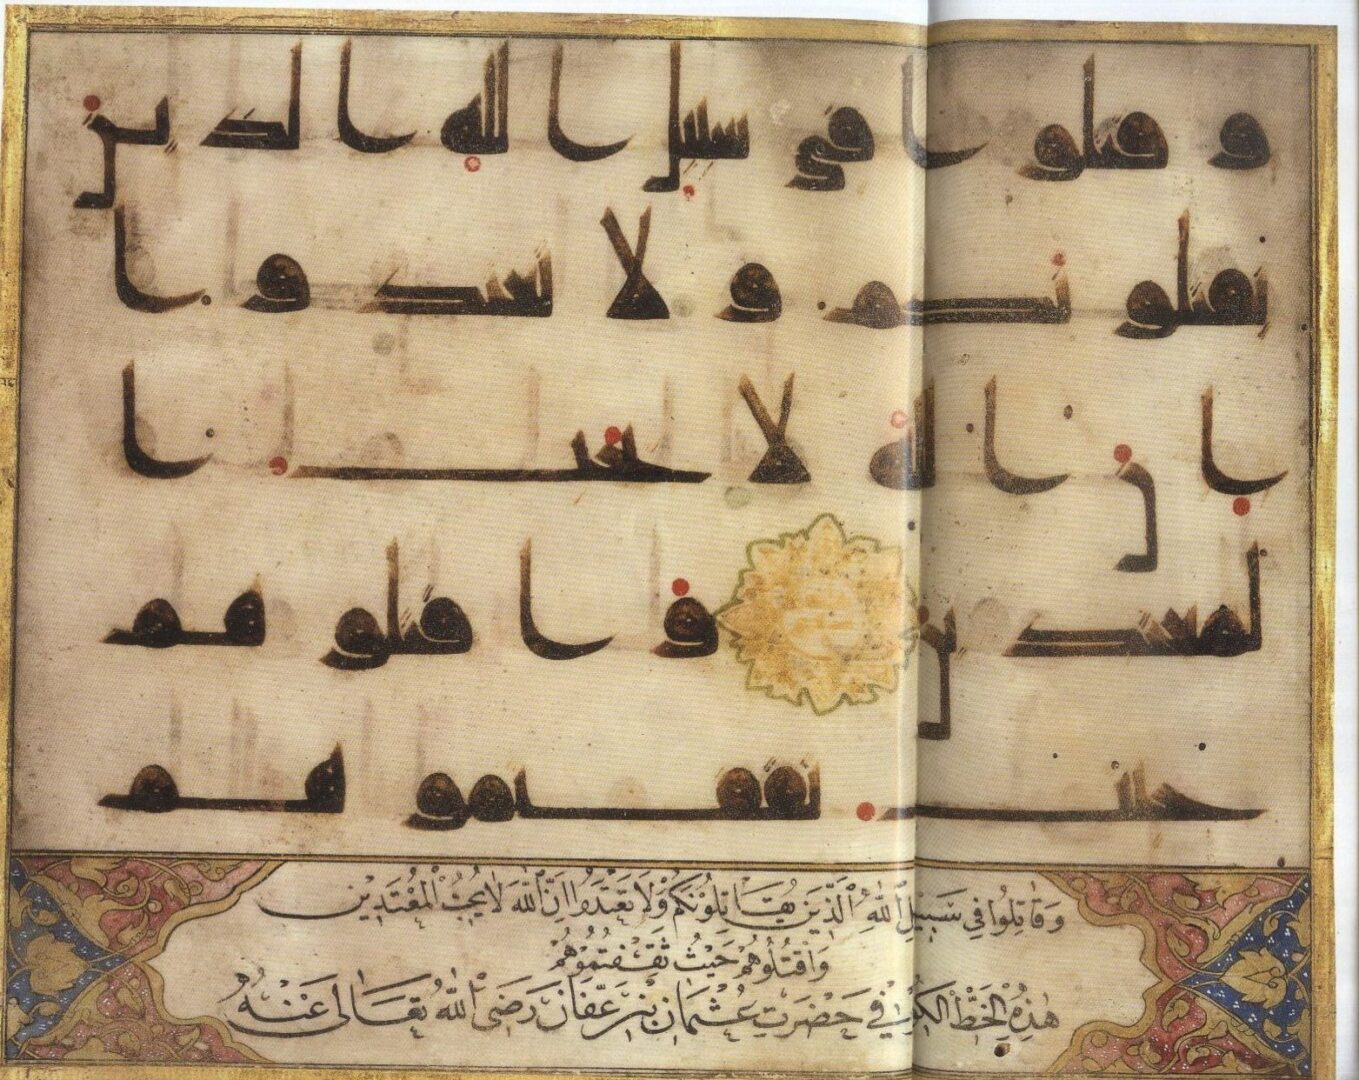 وقتلوا في سبيل الله الذين
يقتلونكم ولا تعتدوا
ان الله لا يحب ا
لمعتدين واقتلوهم
حيث ثقفتموهم
وَقَاتِلُوا فِي سَبِيلِ اللّٰهِ الَّذِينَ يُقَاتِلُونَكُمْ وَلَا تَعْتَدُوا اِنَّ اللّٰهَ لَا يُحِبُّ الْمُعْتَدِينَ
وَاقْتُلُوهُمْ حَيْثُ ثَقِفْتُمُوهُمْ
هٰذِهِ الْخَطُّ الْكُوفِي حَضْرَتِ عُثْمَان بْن عَفَّان رَضِىَ اللّٰهُ تَعَالٰى عَنْهُ